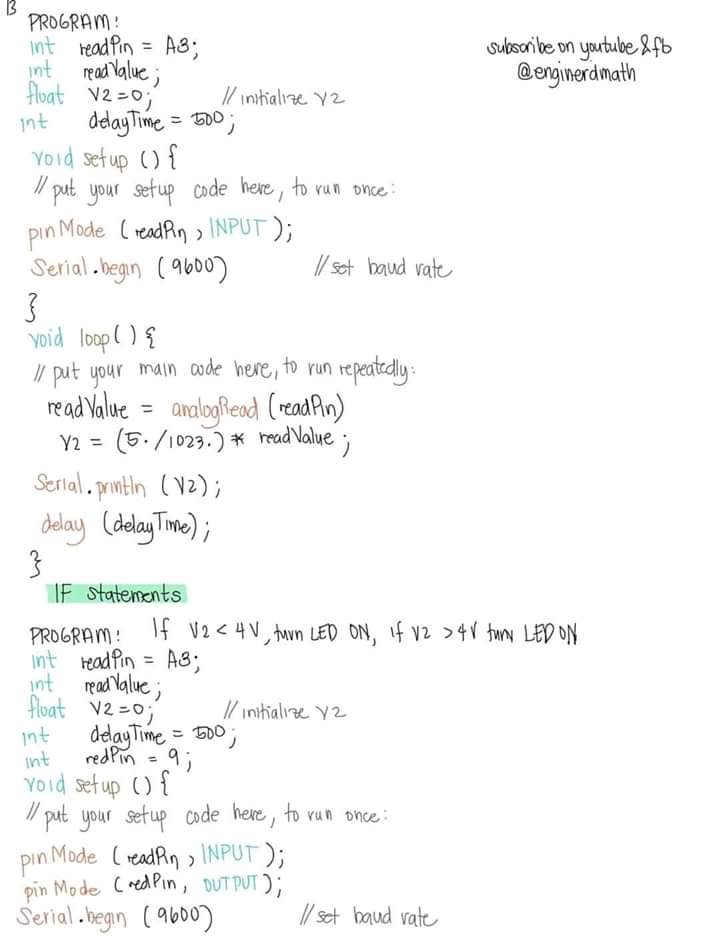 B
PROGRAM:
int readPin = A3;
subscribe on youtube & fb
int readValue;
@enginerdmath
float V2=0; // initialize V2
int delayTime = 500;
void setup () {
// put your setup code here, to run once:
pinMode (readPin, INPUT);
Serial.begin (9600) // set baud rate
}
void loop() {
// put your main code here, to run repeatedly:
readValue = analogRead (readPin)
V2 = (5./1023.) * readValue;
Serial.println (V2);
delay (delayTime);
}
IF statements
PROGRAM: If V2 < 4V, turn LED ON, if V2 > 4V turn LED ON
int readPin = A3;
int readValue;
float V2=0; // initialize V2
int delayTime = 500;
int redPin = 9;
void setup () {
// put your setup code here, to run once:
pinMode (readPin, INPUT);
pinMode (redPin, OUTPUT);
Serial.begin (9600) // set baud rate